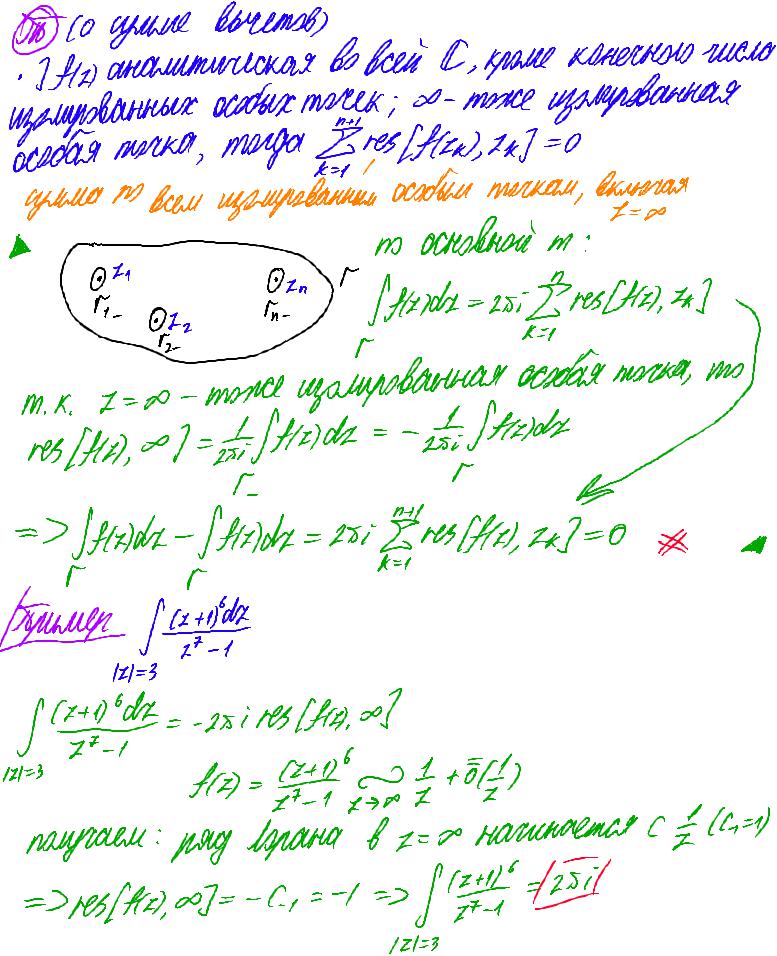 Th (о сумме вычетов)
· ] f(z) аналитическая во всей ℂ, кроме конечного числа
изолированных особых точек; ∞ - тоже изолированная
особая точка, тогда \sum_{k=1}^{n+1} res[f(z_k), z_k] = 0
сумма по всем изолированным особым точкам, включая
z=∞
z_1 z_2 z_n Γ
Γ_{1-} Γ_{2-} Γ_{n-}
по основной т:
\int_Γ f(z)dz = 2πi \sum_{k=1}^{n} res[f(z), z_k]
т.к. z=∞ - тоже изолированная особая точка, то
res[f(z), ∞] = \frac{1}{2πi} \int_{Γ_-} f(z)dz = - \frac{1}{2πi} \int_Γ f(z)dz
=> \int_Γ f(z)dz - \int_Γ f(z)dz = 2πi \sum_{k=1}^{n+1} res[f(z), z_k] = 0
Пример \int_{|z|=3} \frac{(z+1)^6 dz}{z^7-1}
\int_{|z|=3} \frac{(z+1)^6 dz}{z^7-1} = -2πi res[f(z), ∞]
f(z) = \frac{(z+1)^6}{z^7-1} \sim_{z→∞} \frac{1}{z} + \bar{\bar{o}}(\frac{1}{z})
получаем: ряд Лорана в z=∞ начинается с \frac{1}{z} (C_{-1}=1)
=> res[f(z), ∞] = -C_{-1} = -1 => \int_{|z|=3} \frac{(z+1)^6}{z^7-1} = 2πi